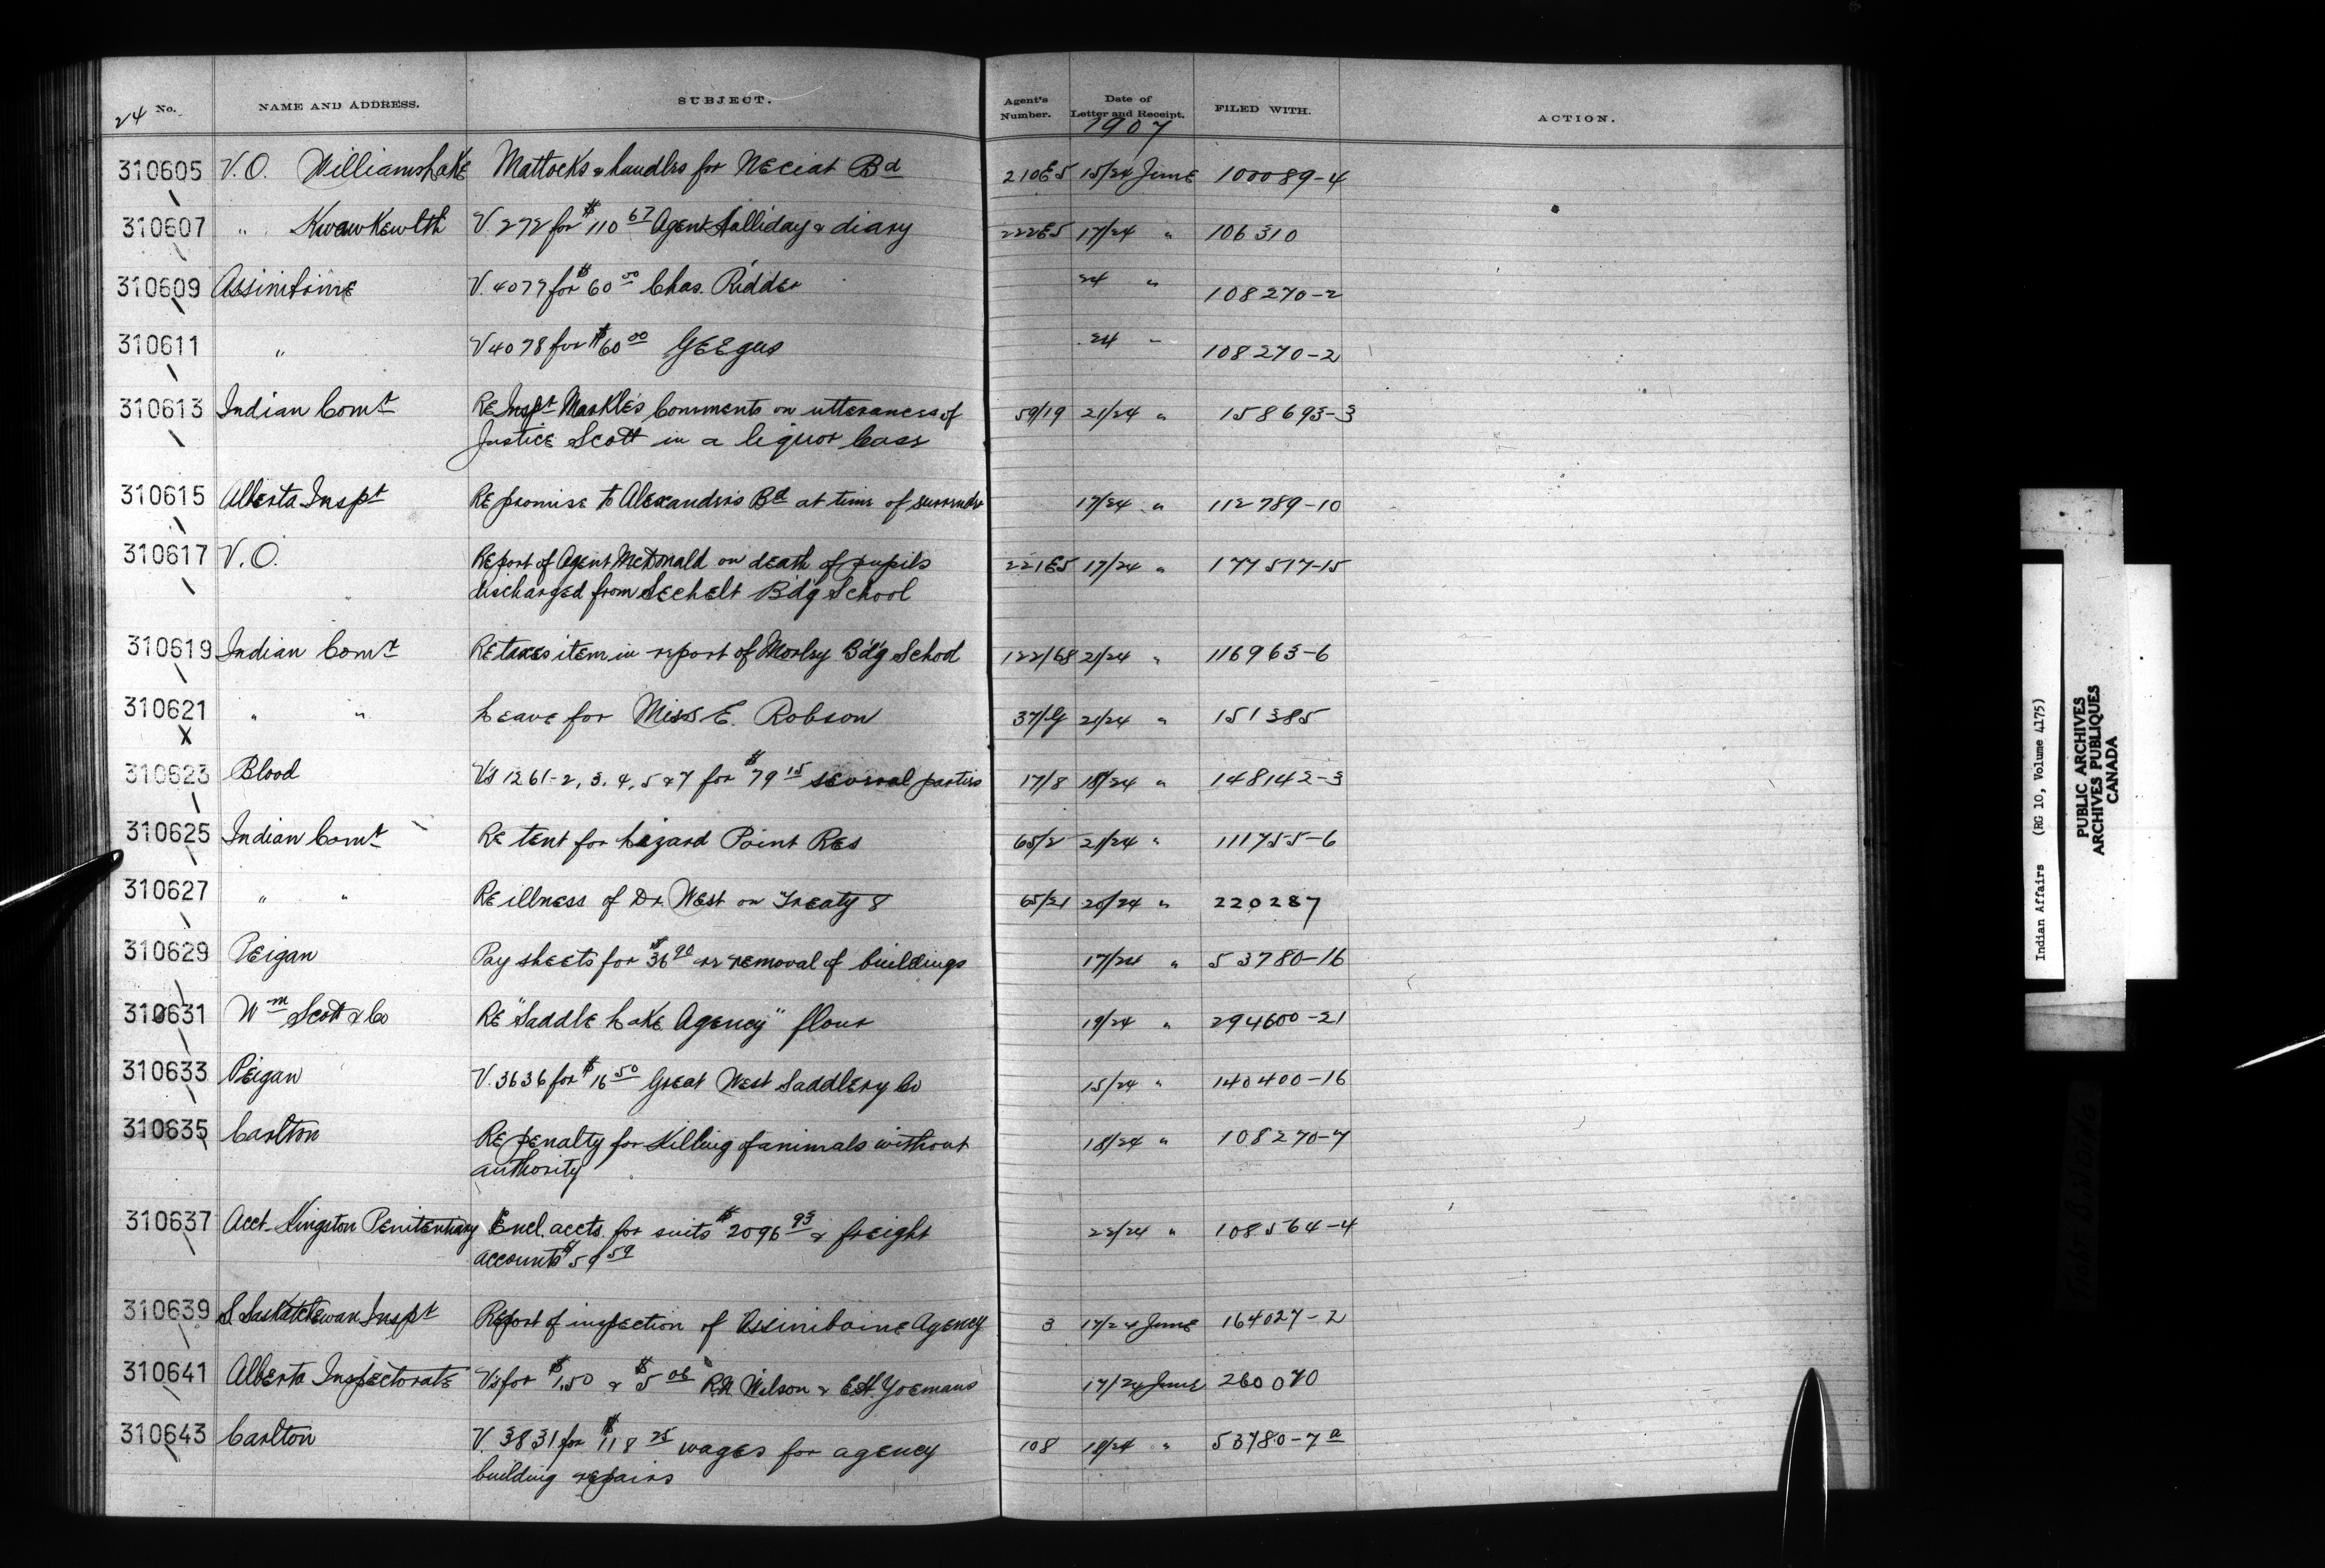 24 No. NAME AND ADDRESS. SUBJECT. Agent's Number. Date of Letter and Receipt. FILED WITH. ACTION.
1907
310605 V.O. Williams Lake Mattocks & handles for Neciat Bd 210E5 15/24 June 100089-4
310607 " Kwawkewlth V. 272 for $110 67 Agent Halliday & diary 222E5 17/24 " 106310
310609 Assiniboine V. 4077 for $60 00 Chas. Ridder 24 " 108270-2
310611 " V 4078 for $60 00 24 " 108270-2
310613 Indian Comr Re Inspr Markle's Comments on utterances of 59/19 21/24 " 158693-3
Justice Scott in a liquor case
310615 Alberta Inspt Re promise to Alexander's Bd at time of surrender 17/24 " 112789-10
310617 V.O. Report of Agent McDonald on death of pupils 221E5 17/24 " 177517-15
discharged from Sechelt B'd'g School
310619 Indian Comr Re taxes item in report of Morley B'd'g School 122/68 21/24 " 116963-6
310621 " " Leave for Miss E. Robson 21/24 " 151385
X
310623 Blood V's 1261-2, 3, 4, 5 & 7 for $79 15 several parties 17/8 18/24 " 148142-3
310625 Indian Comr Re tent for Lizard Point Res 65/2 21/24 " 111755-6
310627 " " Re illness of Dr. West on Treaty 8 65/21 20/24 " 220287
310629 Peigan Pay sheets for $36 90 re removal of buildings 17/24 " 53780-16
310631 Wm Scott & Co Re "Saddle Lake Agency" flour 19/24 " 294600-21
310633 Peigan V. 3636 for $16 50 Great West Saddlery Co 15/24 " 140400-16
310635 Carlton Re penalty for killing of animals without 18/24 " 108270-7
authority
310637 Acct. Kingston Penitentiary Encl. accts. for suits $2096 93 & freight 22/24 " 108564-4
accounts $59 59
310639 S. Saskatchewan Inspt Report of inspection of Assiniboine Agency 3 17/24 June 164027-2
310641 Alberta Inspectorate V's for $1.50 & $5 06 R.N. Wilson & E.H. Yoemans 17/24 June 260070
310643 Carlton V. 3831 for $118 25 wages for agency 108 18/24 " 53780-7 a
building repairs
Indian Affairs (RG 10, Volume 4175)
PUBLIC ARCHIVES
ARCHIVES PUBLIQUES
CANADA